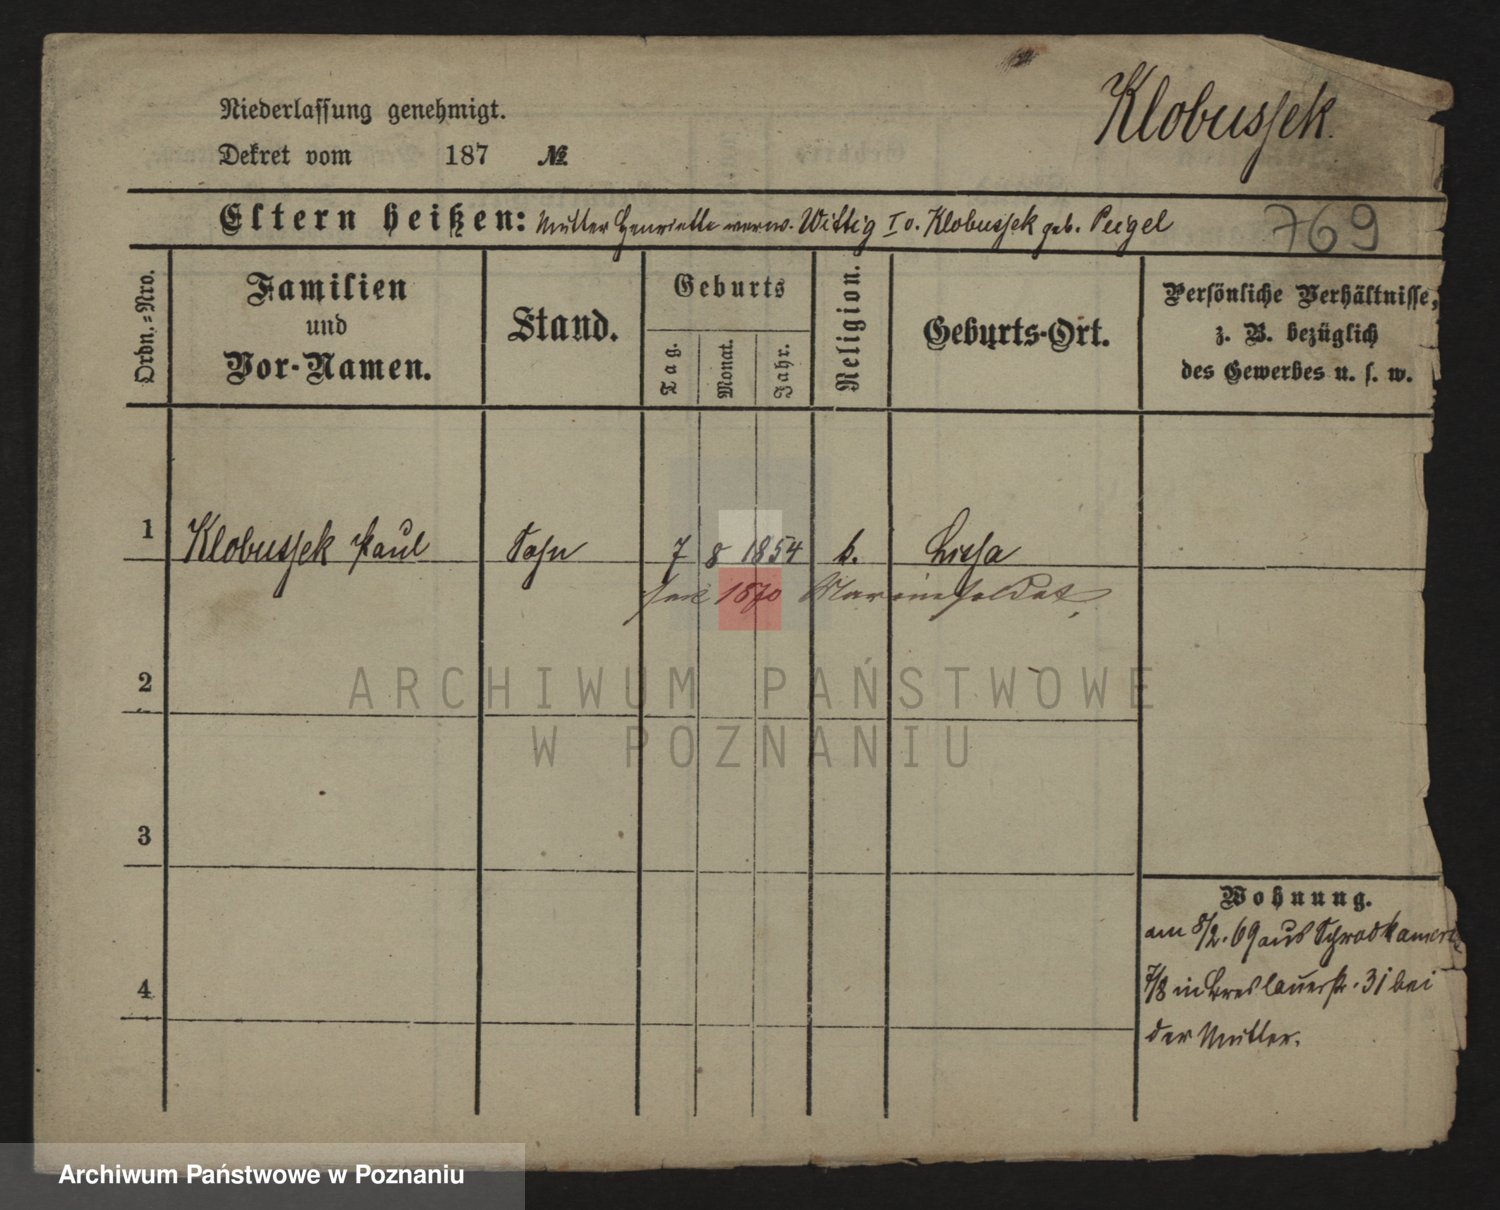 Klobussek.
Niederlassung genehmigt.
Dekret vom 187 №
Eltern heißen: Mutter Henriette verw. Wittig I v. Klobussek geb. Peigel
769
Ordn.-Nro.
Familien
und
Vor-Namen.
Stand.
Geburts
Tag.
Monat.
Jahr.
Religion.
Geburts-Ort.
Persönliche Verhältnisse,
z. B. bezüglich
des Gewerbes u. s. w.
1 Klobussek Paul Sohn 7 8 1854 k. Lissa
seit 1870 Marinesoldat
2
ARCHIWUM PAŃSTWOWE
W POZNANIU
3
4
Wohnung.
am 8/2. 69 aus
7/8 in Breslauerstr. 31 bei
der Mutter.
Archiwum Państwowe w Poznaniu